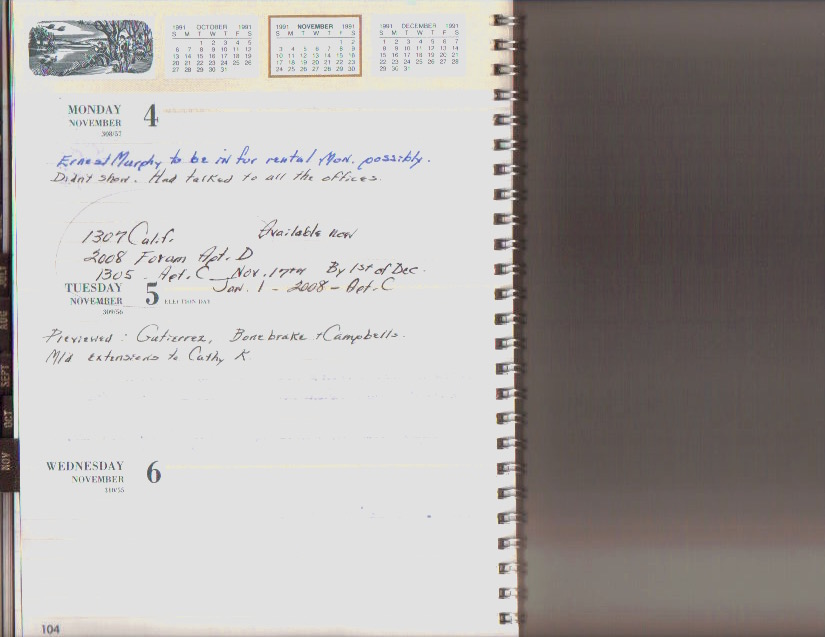 1991 OCTOBER 1991
S M T W T F S
1 2 3 4 5
6 7 8 9 10 11 12
13 14 15 16 17 18 19
20 21 22 23 24 25 26
27 28 29 30 31
1991 NOVEMBER 1991
S M T W T F S
1 2
3 4 5 6 7 8 9
10 11 12 13 14 15 16
17 18 19 20 21 22 23
24 25 26 27 28 29 30
1991 DECEMBER 1991
S M T W T F S
1 2 3 4 5 6 7
8 9 10 11 12 13 14
15 16 17 18 19 20 21
22 23 24 25 26 27 28
29 30 31
MONDAY 4
NOVEMBER
308/57
Ernest Murphy to be in fur rental Mon. possibly.
Didn't show. Had talked to all the offices.
1307 Calif. Available now
2008 Foram Apt. D
1305 Apt. C Nov. 17th By 1st of Dec.
Jan. 1 - 2008 - Apt. C
TUESDAY 5 ELECTION DAY
NOVEMBER
309/56
Previewed: Gutierrez, Bonebrake + Campbells.
Mld extensions to Cathy K
WEDNESDAY 6
NOVEMBER
310/55
104
JULY
AUG
SEPT
OCT
NOV